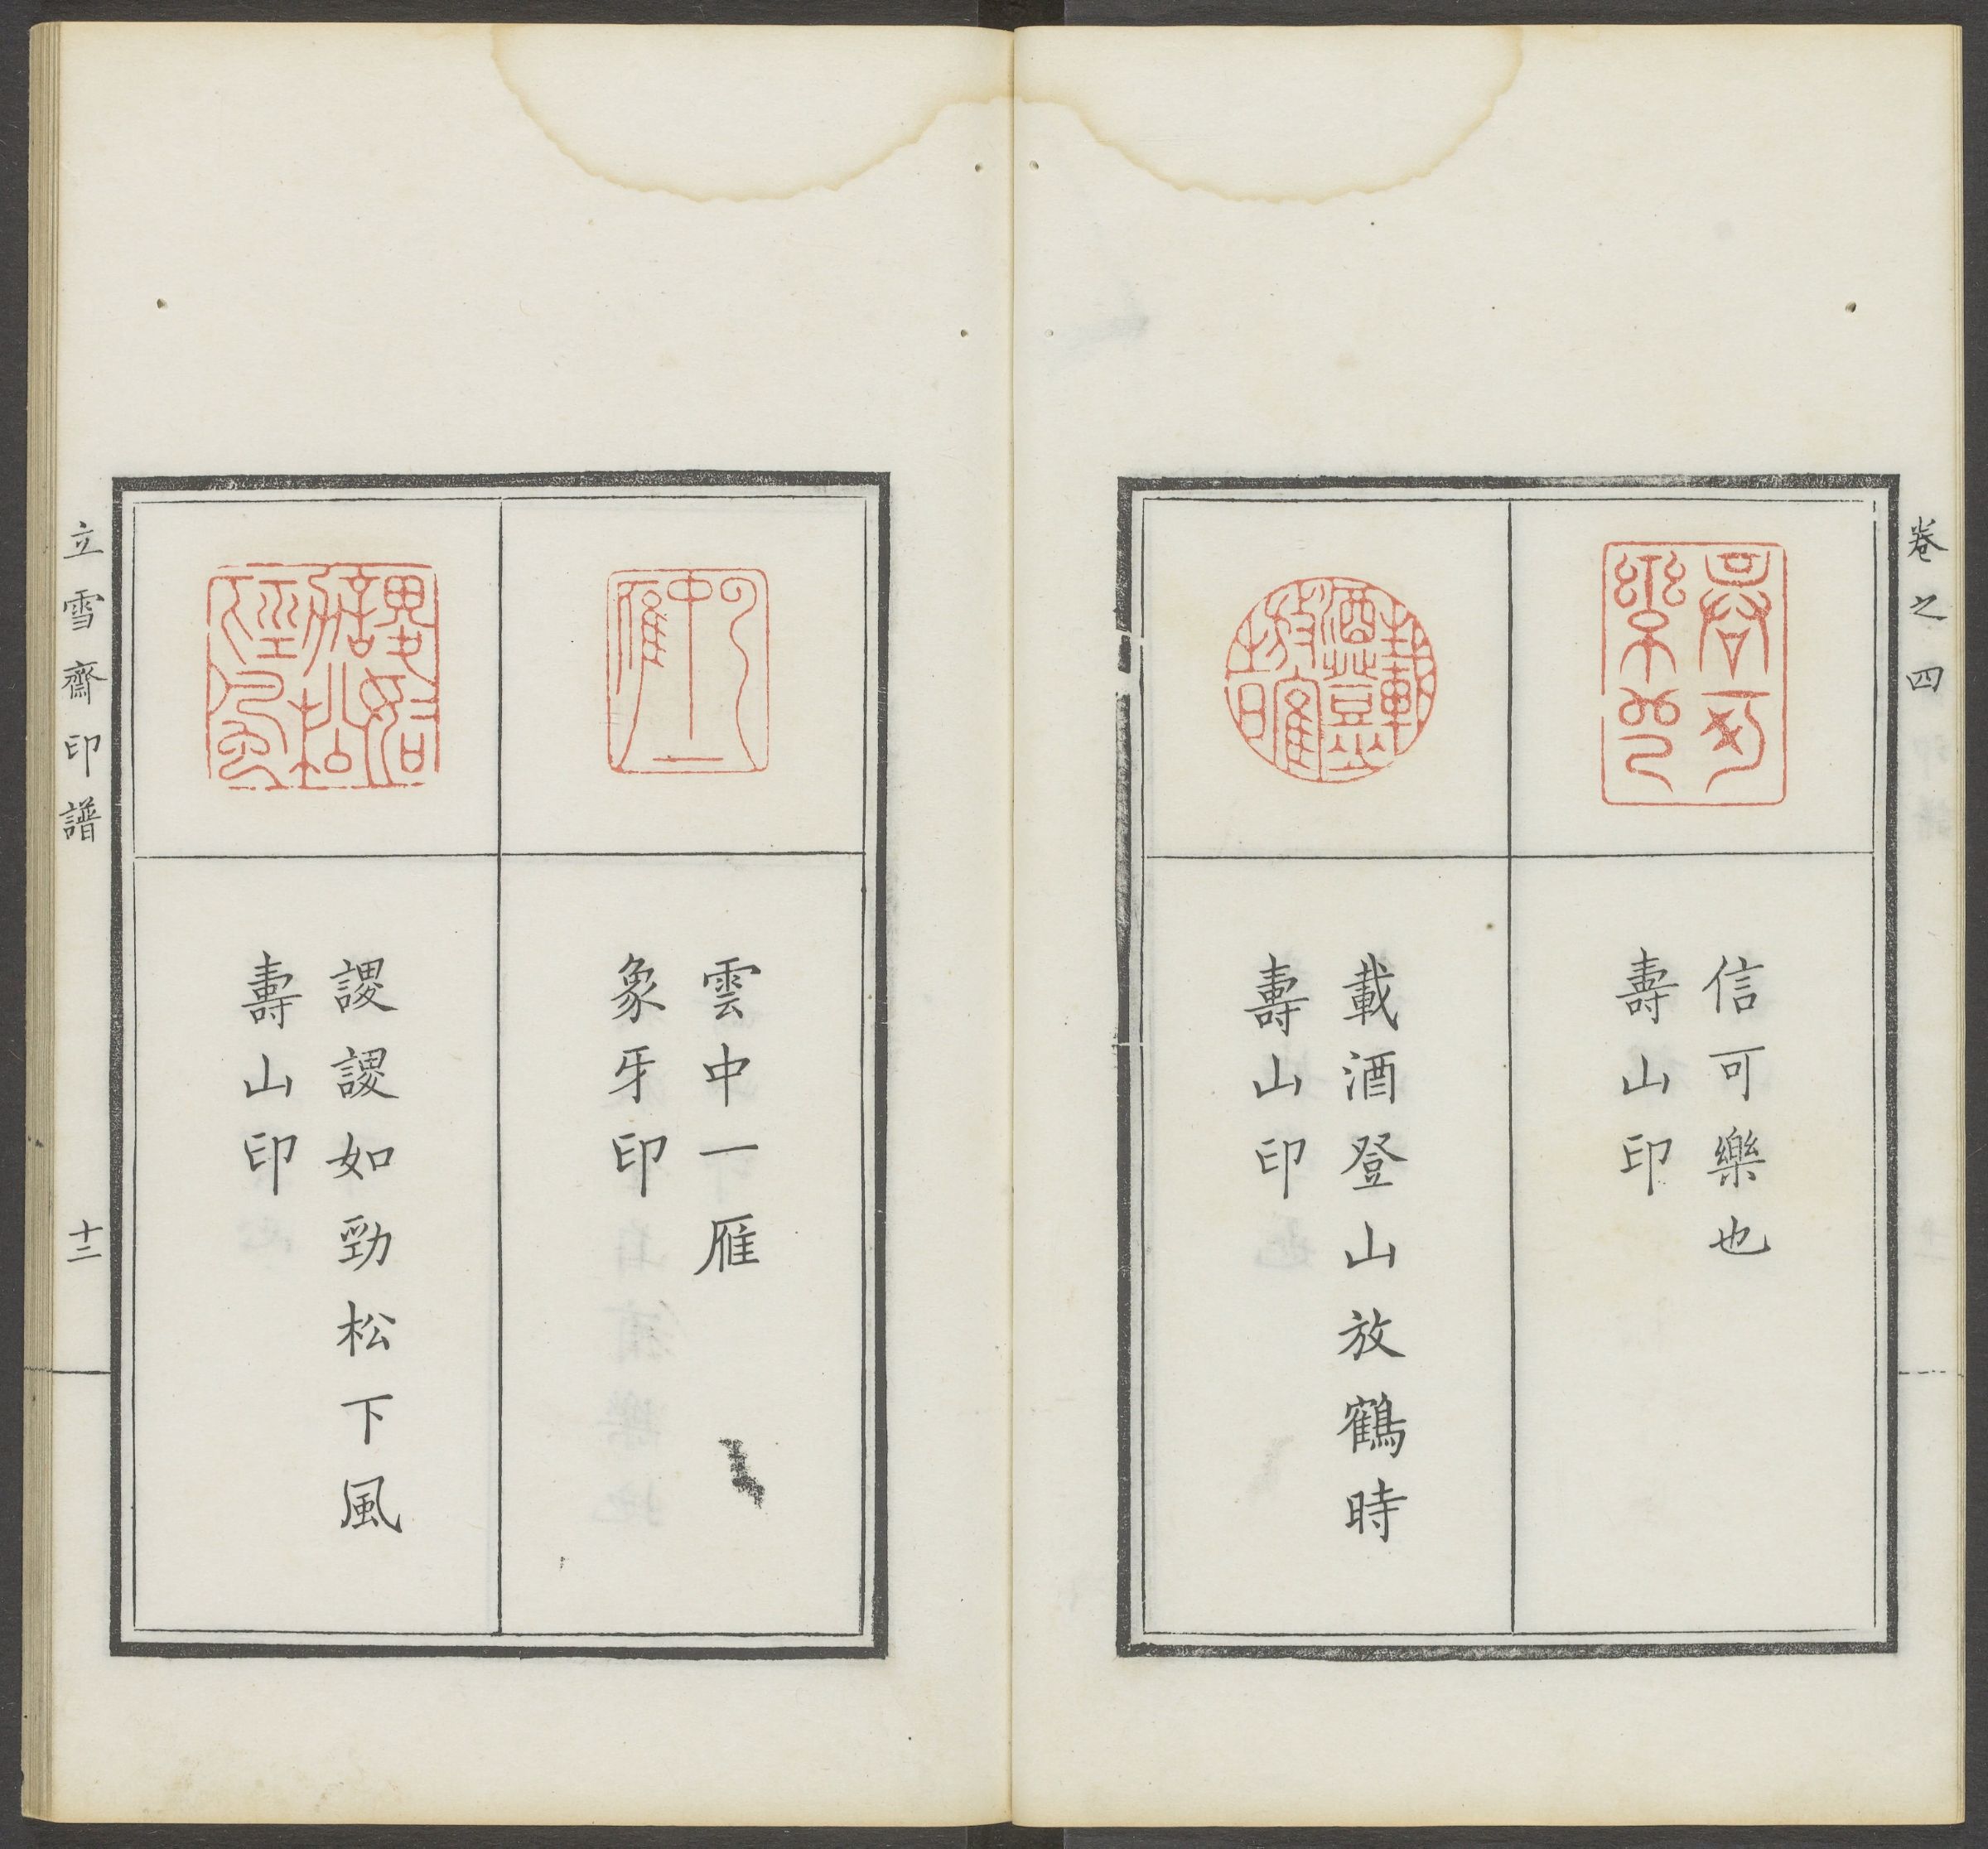 卷之四
信可樂也
壽山印
載酒登山放鶴時
壽山印
雲中一雁
象牙印
謖謖如勁松下風
壽山印
立雪齋印譜
十二